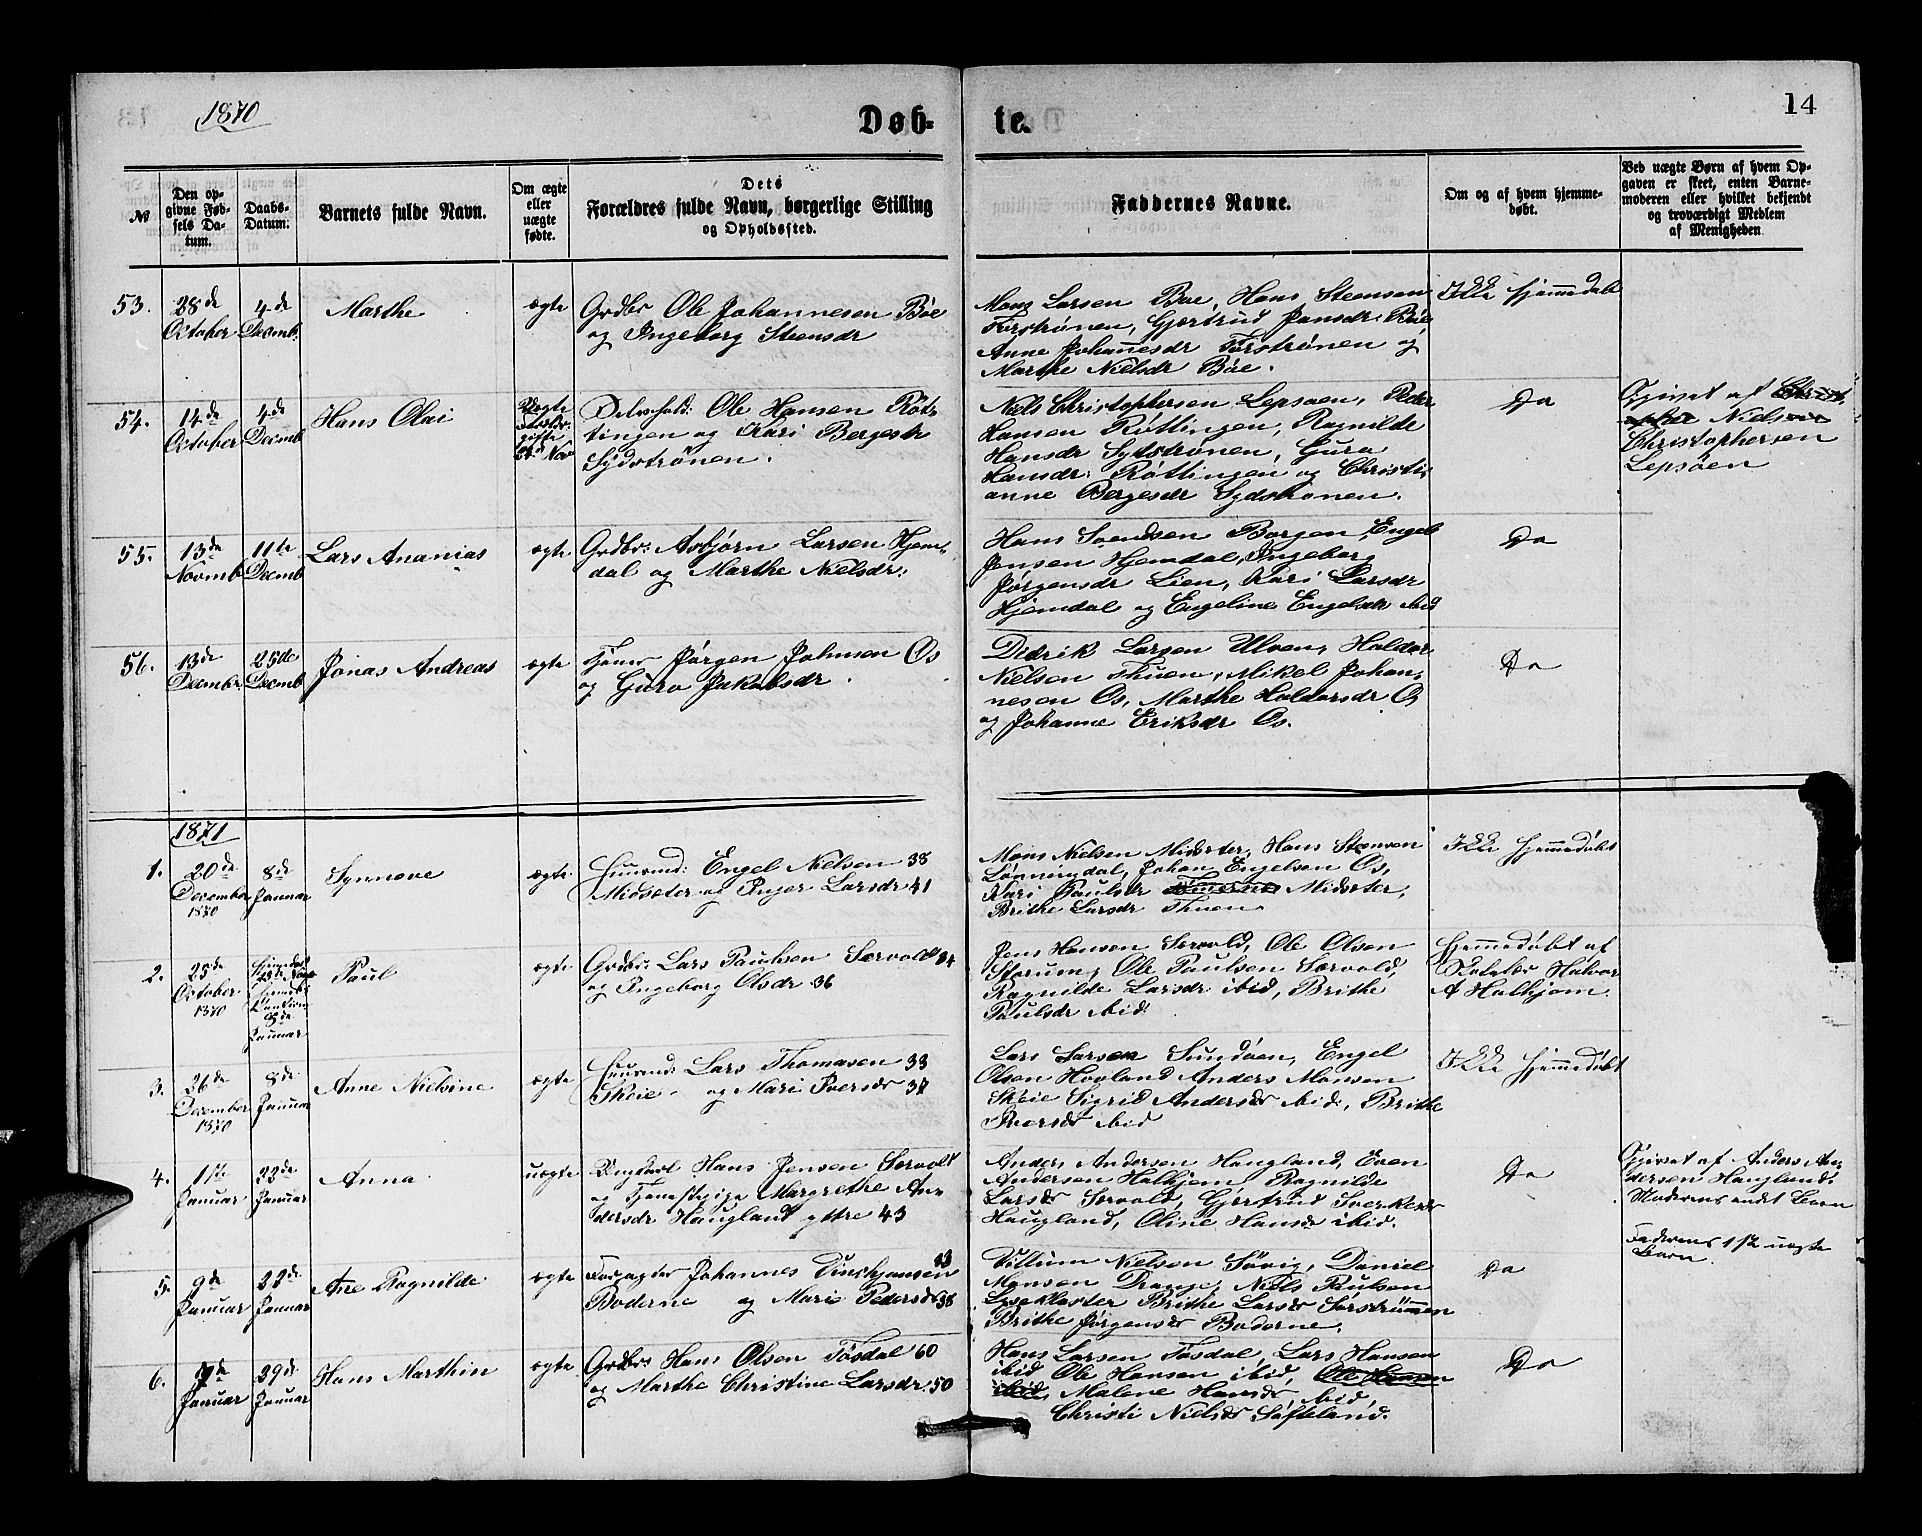 1870
Døb-
te.
14
№
Den op-
givne Fød-
sels Da-
tum.
Daabs-
Datum.
Barnets fulde Navn.
Om ægte
eller
uægte
fødte.
Dets
Forældres fulde Navn, borgerlige Stilling
og Opholdssted.
Faddernes Navne.
Om og af hvem hjemme-
døbt.
Ved uægte Børn af hvem Op-
gaven er skeet, enten Barne-
moderen eller hvilket bekjendt
og troværdigt Medlem
af Menigheden
53.
28de
October
4de
Decemb.
Marthe
ægte
Grdbr Ole Johannesen Bøe
og Ingeborg Steensdr
Mons Larsen Bøe, Hans Steensen
Førstrønen, Gjertrud Jansdr Bøe
Anne Johanesdr Førstrønen og
Marthe Nielsdr Bøe.
Ikke hjemmedøbt
54.
14de
October
4de
Decemb
Hans Olai
Uægte
gifte
Nov
Selveholdr Ole Hansen Røt-
tingen og Kari Bergesdr
Sydstrønen.
Niels Christophersen Lepsøen, Peder
Hansen Røttingen, Ragnilde
Hansdr Sydstrønen, Guro
Hansdr: Røttingen og Christi-
anne Bergesdr Sydstrønen.
Do
Opgivet af
Nielsen
Christophersen
Lepsøen
55.
13de
Novmb
11te
Decemb
Lars Ananias
ægte
Grdbr: Asbjørn Larsen Hjem-
dal og Marthe Nielsdr:
Hans Svendsen Borgen, Engel
Jensen Hjemdal, Ingeborg
Jørgensdr Lien, Kari Larsdr
Hjemdal og Engeline Engelsdr ibid
Do
56.
13de
Decmbr
25de
Decemb
Jonas Andreas
ægte
Tjener Jørgen Johnsen Os
og Guro Jakobsdr.
Didrik Larsen Ulven, Haldor
Nielsen Thuen, Mikel Johan-
nesen Os, Marthe Haldorsdr Os
og Johanne Eriksdr Os.
Do
1871
1.
20de
December
1870
8de
Januar
Synneve
ægte
Huusmd: Engel Nielsen 38
Midsæter og Inger Larsdr 41
Mons Nielsen Midsæter, Hans Steensen
Lønningdal, Johan Engelsen Os,
Kari Paulsdr Midsæter,
Brithe Larsdr Thuen
Ikke hjemmedøbt
2.
25de
October
1870
8de
Januar
Paul
ægte
Grdbr: Lars Paulsen Sørvold 34
og Ingeborg Olsdr 36
Jens Hansen Sørvold, Ole Olsen
Storum, Ole Paulsen Sørvold,
Ragnilde Larsdr ibid, Brithe
Paulsdr ibid.
Hjemmedøbt af
Skolelær Halvor
A Halhjem.
3.
26de
December
1870
8de
Januar
Anne Nielvine
ægte
Huusmd: Lars Thomasen 33
Skeie og Mari Iversdr 37
Lars Larsen Sundøen, Engel
Olsen Hovland Anders Monsen
Skeie Sigrid Andersdr ibid, Brithe
Iversdr ibid
Ikke hjemmedøbt
4.
1ste
Januar
22de
Januar
Anna
uægte
Ungkarl Hans Jensen Sørvold
og Tjenestepige Margrethe An-
dersdr Haugland yttre 43
Anders Andersen Haugland, Even
Andersen Halhjem, Ragnilde
Larsdr Sørvold, Gjertrud Sverkesdr
Haugland, Oline Hansdr ibid.
Do
Opgivet af Anders An-
dersen Haugland
Moderens andet Barn
Faderens 1ste uægte
Barn.
5.
9de
Januar
22de
Januar
Ane Ragnilde
ægte
Johannes 43
Boderne og Mari Pedersdr 38
Villum Nielsen Søvig, Daniel
Monsen Drange, Niels Paulsen
Lysekloster Brithe Larsdr Sørstrømmen
Brithe Jørgensdr Boderne.
Do
6.
Januar
29de
Januar
Hans Marthin
ægte
Grdbr: Hans Olsen Tøsdal 60
og Marthe Christine Larsdr 50
Hans Larsen Tøsdal, Lars Hansen
ibid Ole Hansen ibid, Ole Hansen
ibid, Malene Hansdr ibid,
Christi Nielsdr Søfteland.
Do